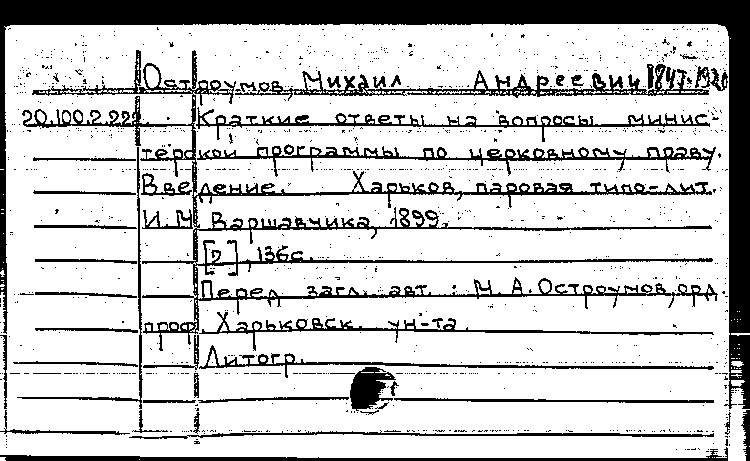 Остроумов, Михаил Андреевич 1847-1920
20.100.2.222. Краткие ответы на вопросы минис-
терской программы по церковному праву.
Введение. Харьков, паровая типо-лит.
И. М. Варшавчика, 1899.
[2], 136с.
Перед загл. авт. : М. А. Остроумов, орд.
проф. Харьковск. ун-та.
Литогр.